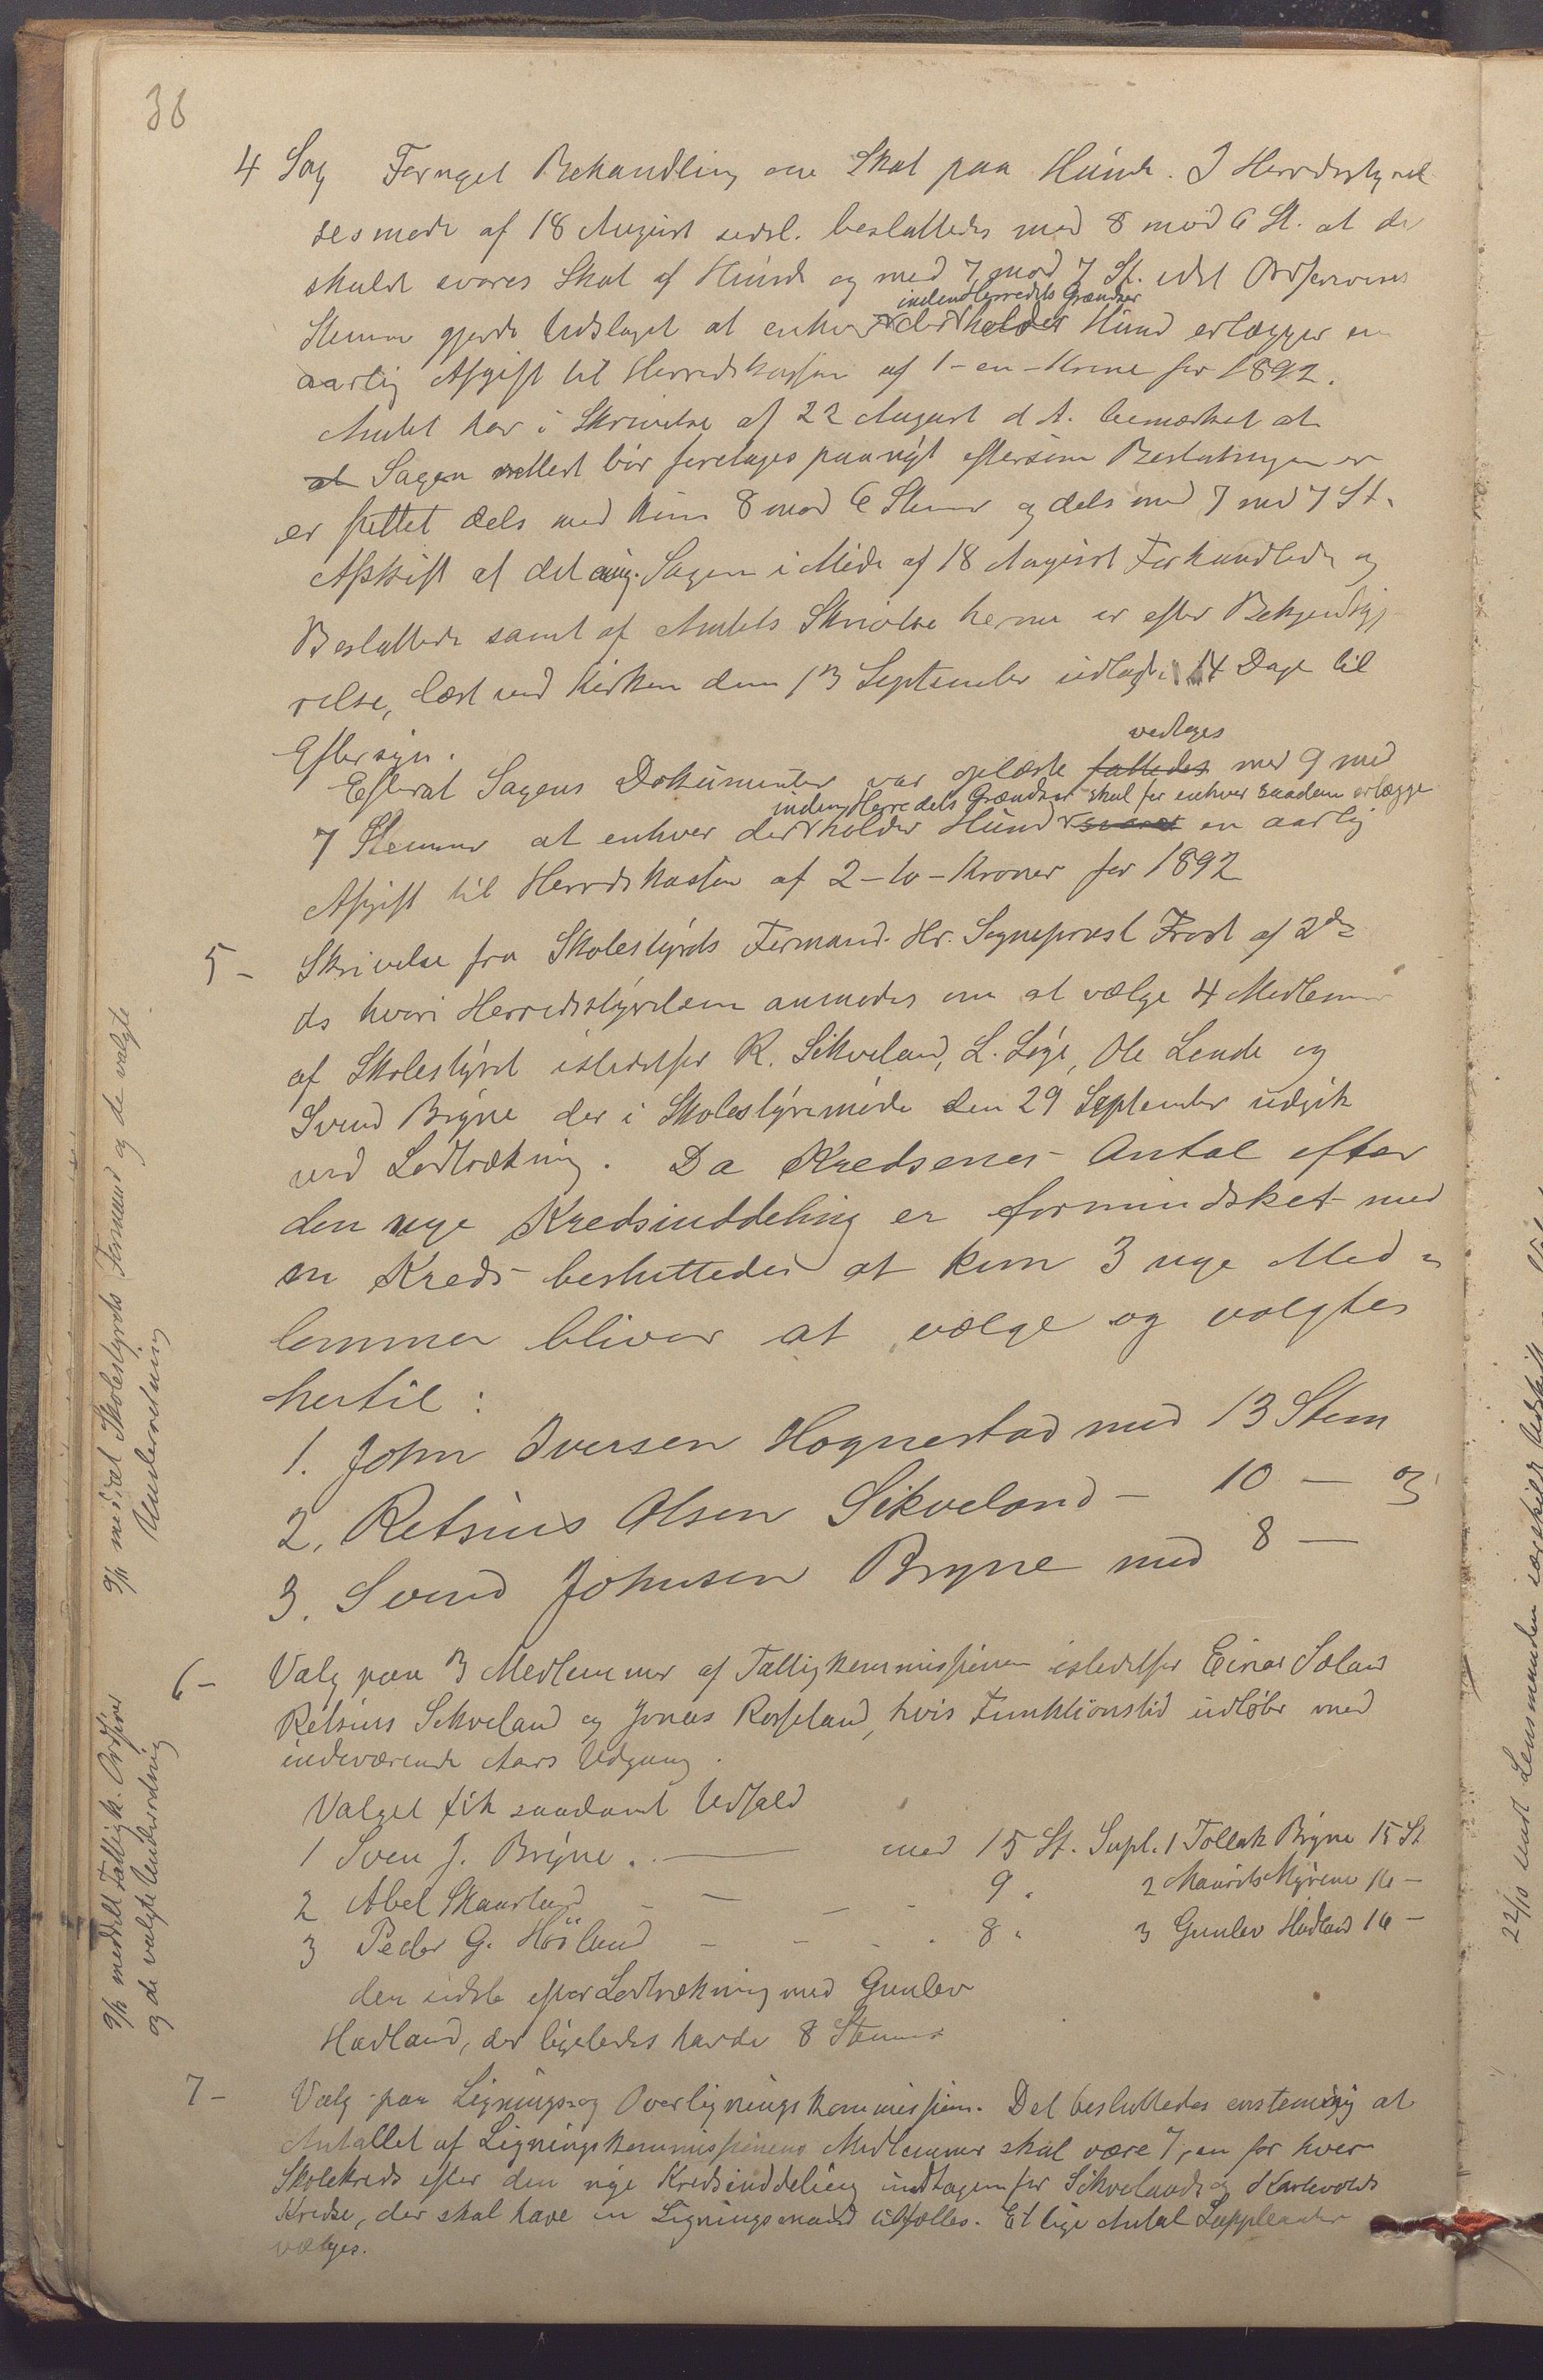 38
4 Sag Fornyet Behandling om Skat paa Hunde. I Herredsstyrel
sesmøde af 18 August sidstl. besluttedes med 8 mod 6 St. at der
skulde svares Skat af Hunde og med 7 mod 7 St. idet Ordførerens
indenHerredets Grændser
Stemme gjorde Udslaget at enhver der holder Hund erlægger en
aarlig Afgift til Herredskassen af 1 - en - Krone for 1892.
Amtet har i Skrivelse af 22 August d A. bemærket at
at Sagen rettest bør foretages paanýt eftersom Beslutningen er
er fattet dels med kun 8 mod 6 Stemmer og dels med 7 mod 7 St.
Afskrift af det ang. Sagen i Møde af 18 August Forhandlede og
Besluttede samt af Amtets Skrivelse herom er efter Bekjendtgjø
relse, læst ved Kirken den 13 September udlagt i 14 Dage til
Eftersyn.
vedtoges
Efterat Sagens Dokumenter var oplæste fattedes med 9 mod
inden Herredets Grændser skal for enhver saadan erlægge
7 Stemmer at enhver der holder Hund svarer en aarlig
Afgift til Herredskassen af 2 - to - Kroner for 1892
5 - Skrivelse fra Skolestyrets Formand Hr. Sogneprest Frost af 2den
ds hvori Herredsstyrelsen anmodes om at vælge 4 Medlemmer
af Skolestýret istedetfor R. Sikveland, L. Lýe, Ole Lende og
Svend Brýne der i Skolestýremøde den 29 September udgik
ved Lodtrækning. Da Kredsenes Antal efter
den nye Kredsinddeling er formindsket med
en Kreds besluttedes at kun 3 nye Med=
lemmer bliver at vælge og valgtes
hertil:
1. John Iversen Hognestad med 13 Stem
2. Retsius Olsen Sikveland - 10 - og
3. Svend Johnsen Bryne med 8 -
6 - Valg paa 3 Medlemmer af Fattigkommissionen istedetfor Einar Soland
Retsius Sikveland og Jonas Rosseland, hvis Funktionstid udløber med
indeværende Aars Udgang.
Valget fik saadant Udfald
1 Sven J. Brýne. - med 15 St. Supl. 1 Tollak Brýne 15 St
2 Abel Skaarland - - - 9 . 2 Maurits Mýrene 16 -
3 Peder G. Höiland - - - 8 . 3 Gunlev Hadland 16 -
den sidste efter Lodtrækning med Gunlev
Hadland, der ligeledes havde 8 Stemmer
7 - Valg paa Lignings og Overligningskommission. Det besluttedes enstemig at
Antallet af Ligningskommissionens Medlemmer skal være 7, en for hver
Skolekreds efter den nye Kredsinddeling undtagen for Sikvelands og Karlevolds
Kredse, der skal have en Ligningsmand tilfælles. Et lige Antal Suppleanter
vælges.
9/11 medd. Skolestyrets Formand og de valgte
Underretning
9/11 meddelt Fattigk. Ordfører
og de valgte Underretning
22/10 Lensmanden